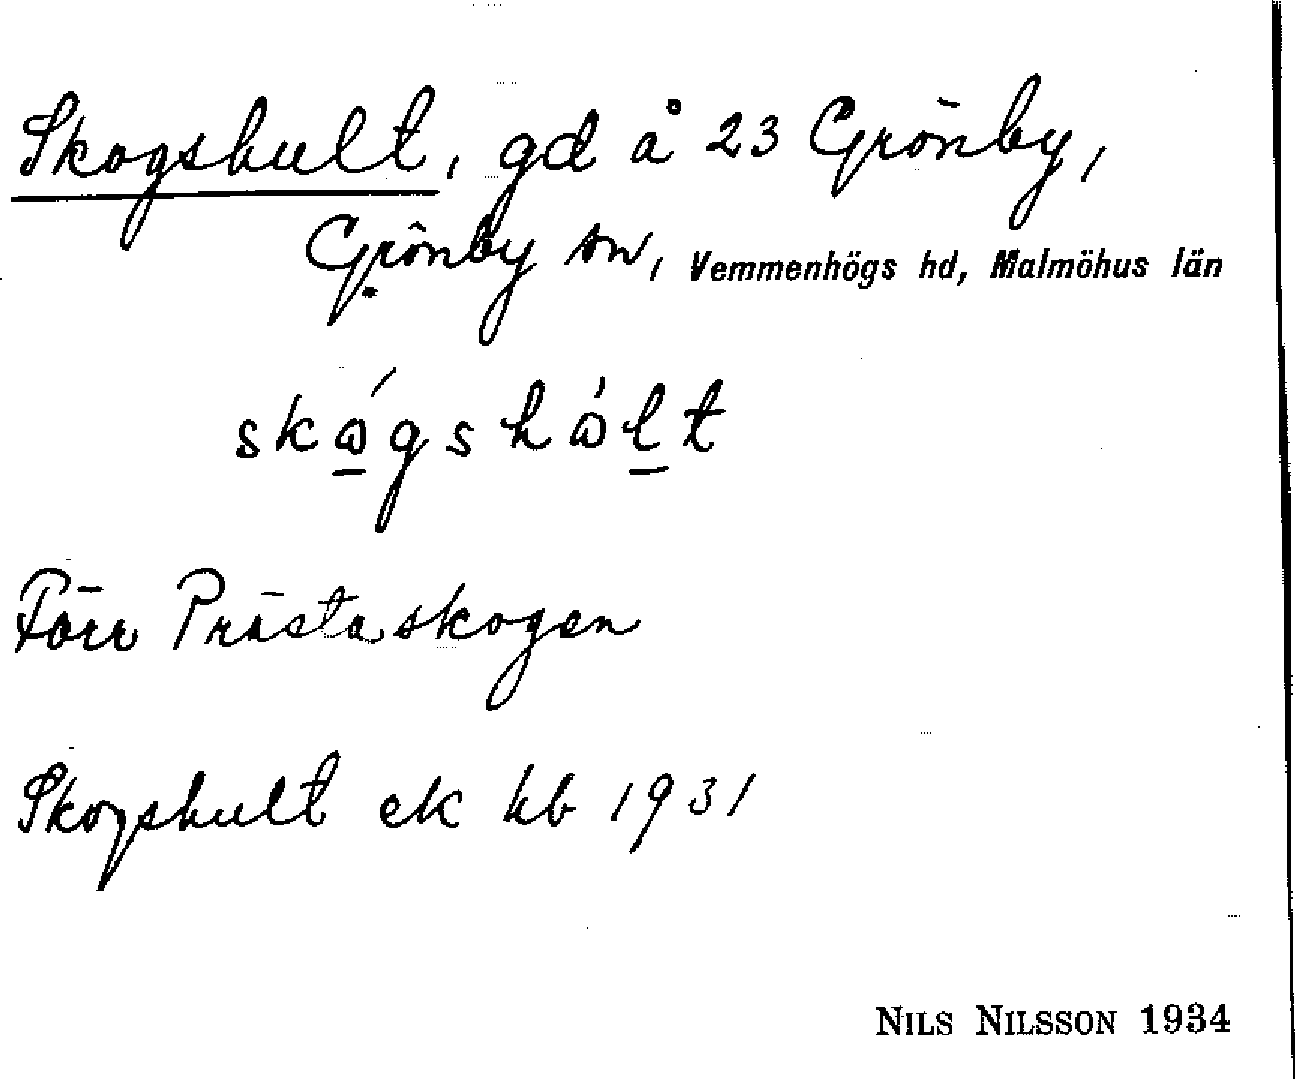 Skogshult, gd å 23 Grönby,
Grönby sn, Vemmenhögs hd, Malmöhus län
skǫ́gshǫ̀lt
Förr Prästaskogen
Skogshult ek kb 1931
NILS NILSSON 1934